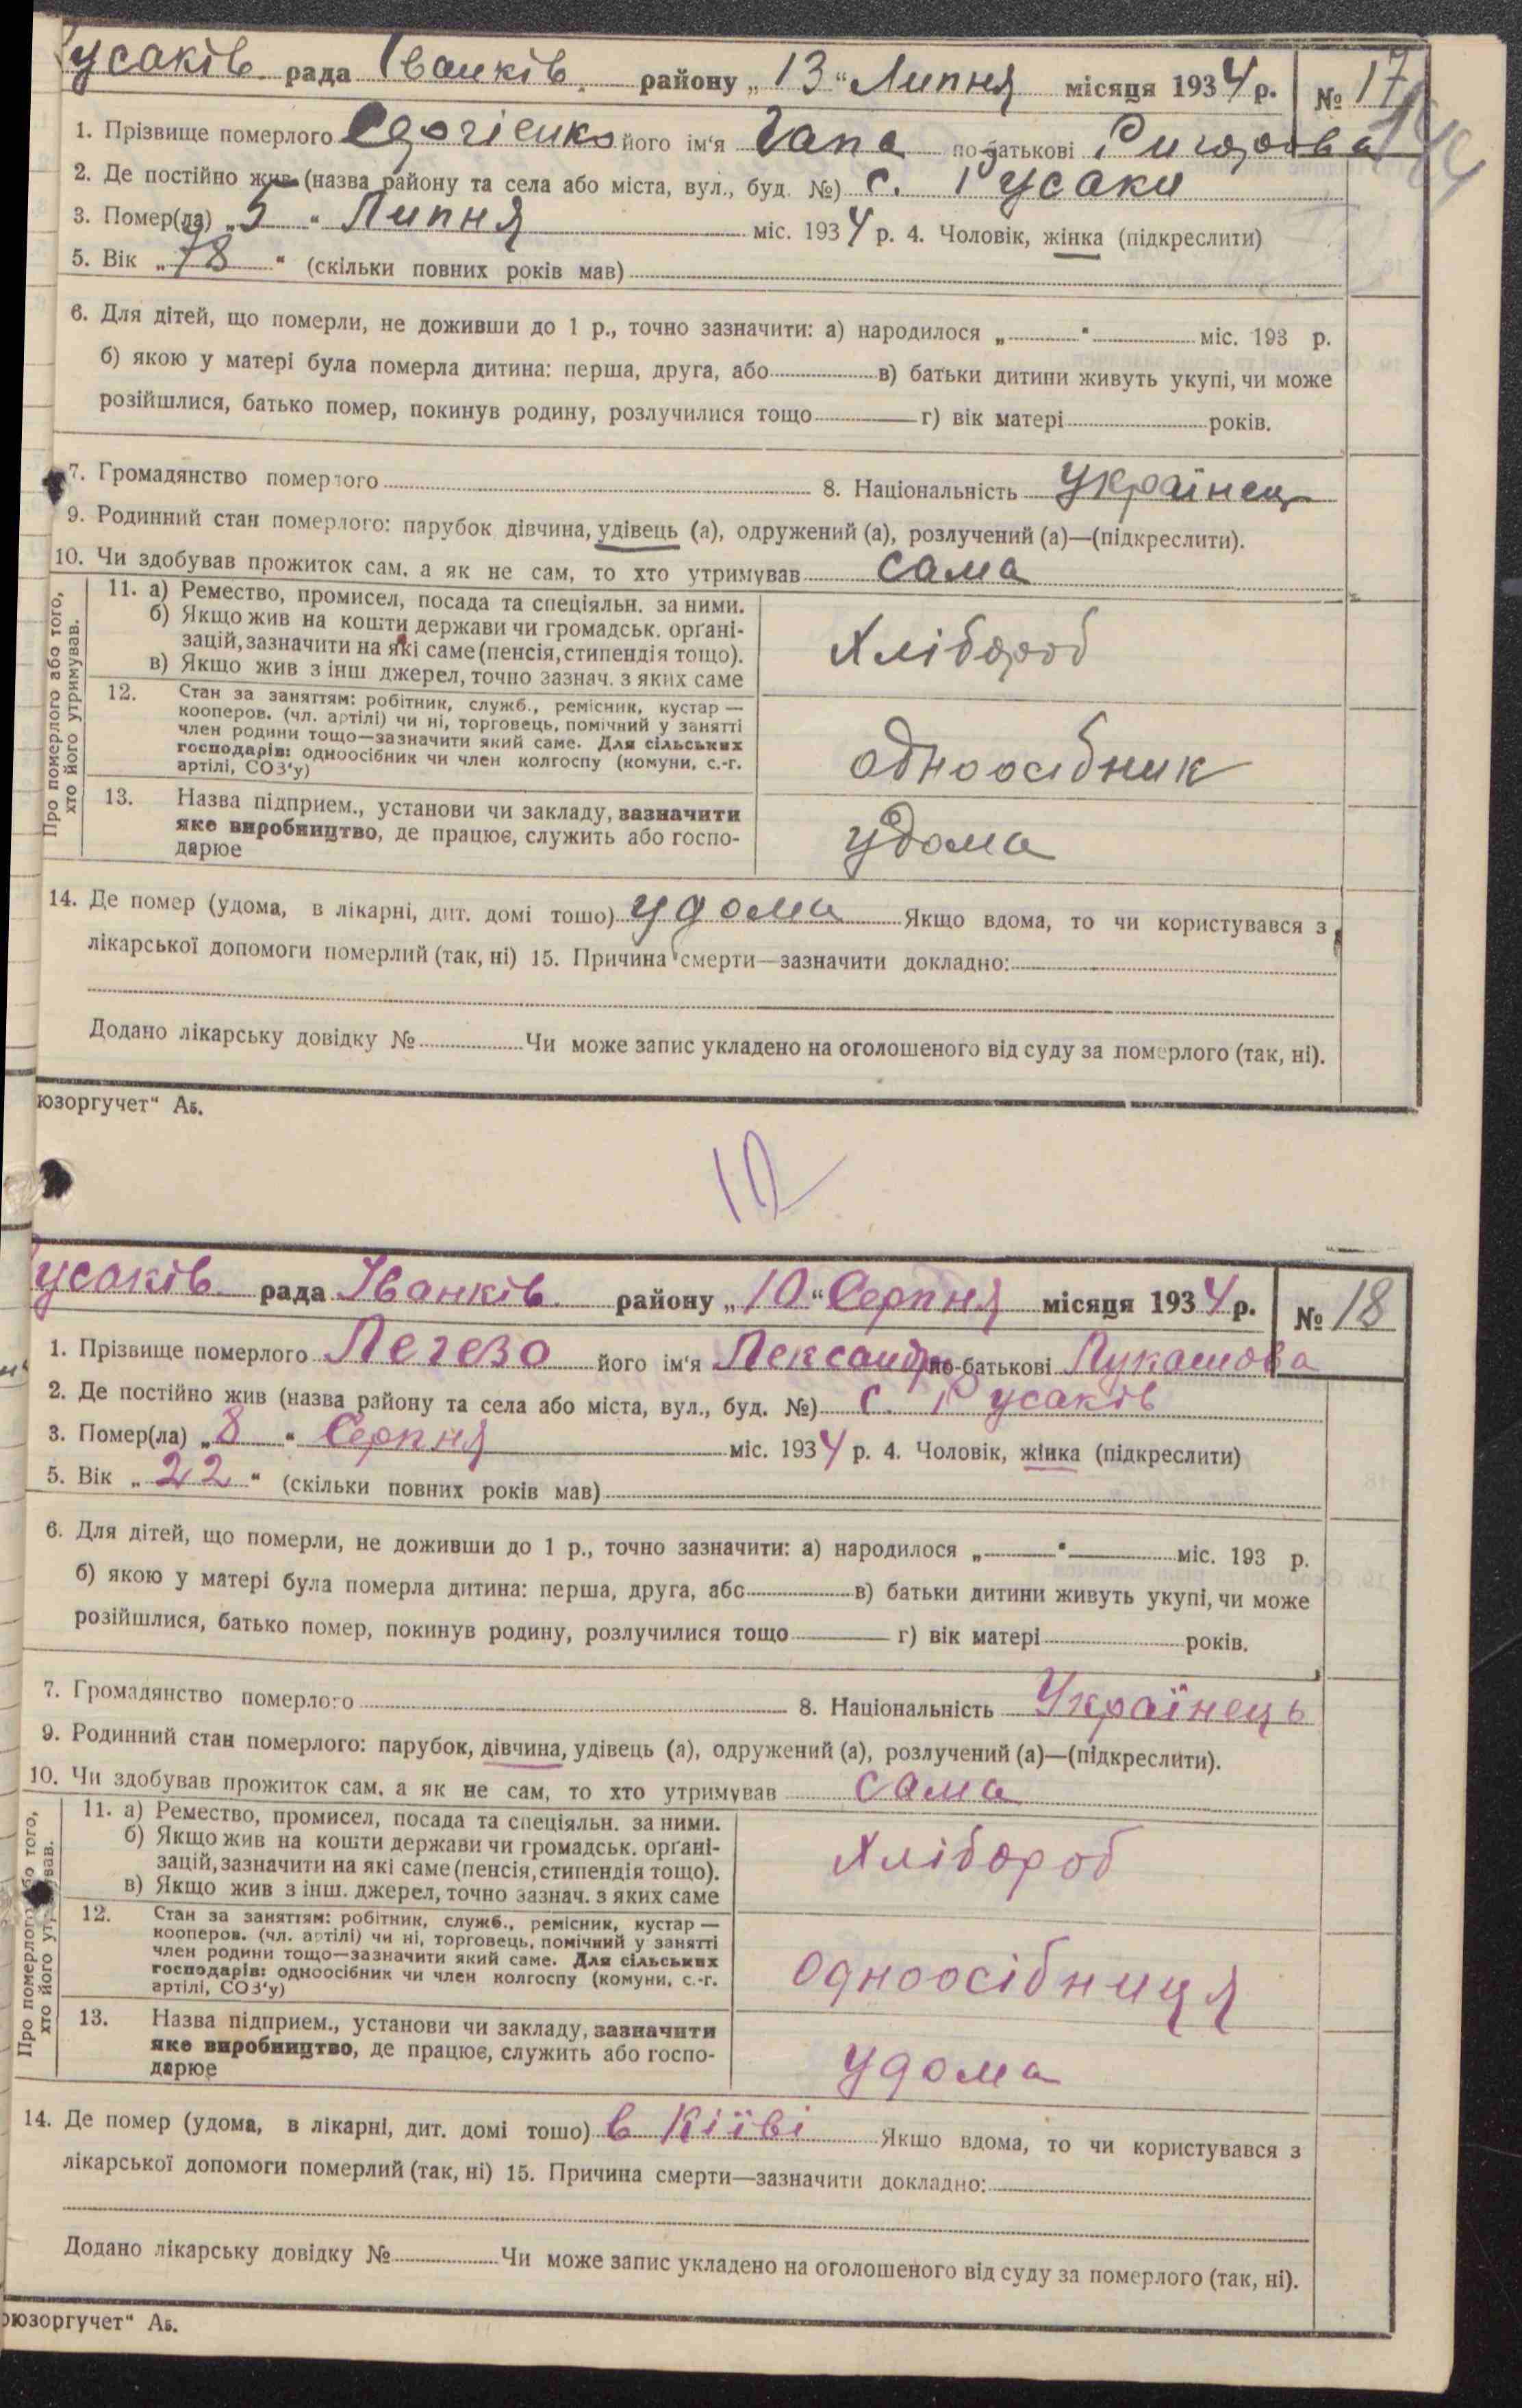 усаків рада Іванків. району „13“ Липня місяця 1934 р. № 17
1. Прізвище померлого його ім'я Гапа по-батькові
2. Де постійно жив (назва району та села або міста, вул., буд. №) с. Русаки
3. Помер(ла) „5“ Липня міс. 1934 р. 4. Чоловік, жінка (підкреслити)
5. Вік „78“ (скільки повних років мав)
6. Для дітей, що померли, не доживши до 1 р., точно зазначити: а) народилося „ “ міс. 193 р.
б) якою у матері була померла дитина: перша, друга, або в) батьки дитини живуть укупі, чи може
розійшлися, батько помер, покинув родину, розлучилися тощо г) вік матері років.
7. Громадянство померлого 8. Національність Українец
9. Родинний стан померлого: парубок дівчина, удівець (а), одружений (а), розлучений (а)—(підкреслити).
10. Чи здобував прожиток сам, а як не сам, то хто утримував сама
Про померлого або того, хто його утримував.
11. а) Ремество, промисел, посада та спеціяльн. за ними.
б) Якщо жив на кошти держави чи громадськ. орґані-
зацій, зазначити на які саме (пенсія, стипендія тощо).
в) Якщо жив з інш джерел, точно зазнач. з яких саме
Хлібороб
12. Стан за заняттям: робітник, служб., ремісник, кустар —
кооперов. (чл. артілі) чи ні, торговець, помічний у занятті
член родини тощо—зазначити який саме. Для сільських
господарів: одноосібник чи член колгоспу (комуни, с.-г.
артілі, СОЗ'у)
одноосібник
13. Назва підприєм., установи чи закладу, зазначити
яке виробництво, де працює, служить або госпо-
дарює
удома
14. Де помер (удома, в лікарні, дит. домі тощо) удома Якщо вдома, то чи користувався з
лікарської допомоги померлий (так, ні) 15. Причина смерти—зазначити докладно:
Додано лікарську довідку № Чи може запис укладено на оголошеного від суду за померлого (так, ні).
юзоргучет“ А5.
усаків рада Іванків. району „10“ Серпня місяця 1934 р. № 18
1. Прізвище померлого Легезо його ім'я Лександра по-батькові Лукашова
2. Де постійно жив (назва району та села або міста, вул., буд. №) с. Русаків
3. Помер(ла) „8“ Серпня міс. 1934 р. 4. Чоловік, жінка (підкреслити)
5. Вік „22“ (скільки повних років мав)
6. Для дітей, що померли, не доживши до 1 р., точно зазначити: а) народилося „ “ міс. 193 р.
б) якою у матері була померла дитина: перша, друга, або в) батьки дитини живуть укупі, чи може
розійшлися, батько помер, покинув родину, розлучилися тощо г) вік матері років.
7. Громадянство померлого 8. Національність Українець
9. Родинний стан померлого: парубок, дівчина, удівець (а), одружений (а), розлучений (а)—(підкреслити).
10. Чи здобував прожиток сам, а як не сам, то хто утримував сама
Про померлого або того, хто його утримував.
11. а) Ремество, промисел, посада та спеціяльн. за ними.
б) Якщо жив на кошти держави чи громадськ. орґані-
зацій, зазначити на які саме (пенсія, стипендія тощо).
в) Якщо жив з інш. джерел, точно зазнач. з яких саме
Хлібороб
12. Стан за заняттям: робітник, служб., ремісник, кустар —
кооперов. (чл. артілі) чи ні, торговець, помічний у занятті
член родини тощо—зазначити який саме. Для сільських
господарів: одноосібник чи член колгоспу (комуни, с.-г.
артілі, СОЗ'у)
Одноосібниця
13. Назва підприєм., установи чи закладу, зазначити
яке виробництво, де працює, служить або госпо-
дарює
удома
14. Де помер (удома, в лікарні, дит. домі тощо) в Кіїві Якшо вдома, то чи користувався з
лікарської допомоги померлий (так, ні) 15. Причина смерти—зазначити докладно:
Додано лікарську довідку № Чи може запис укладено на оголошеного від суду за померлого (так, ні).
юзоргучет“ А5.